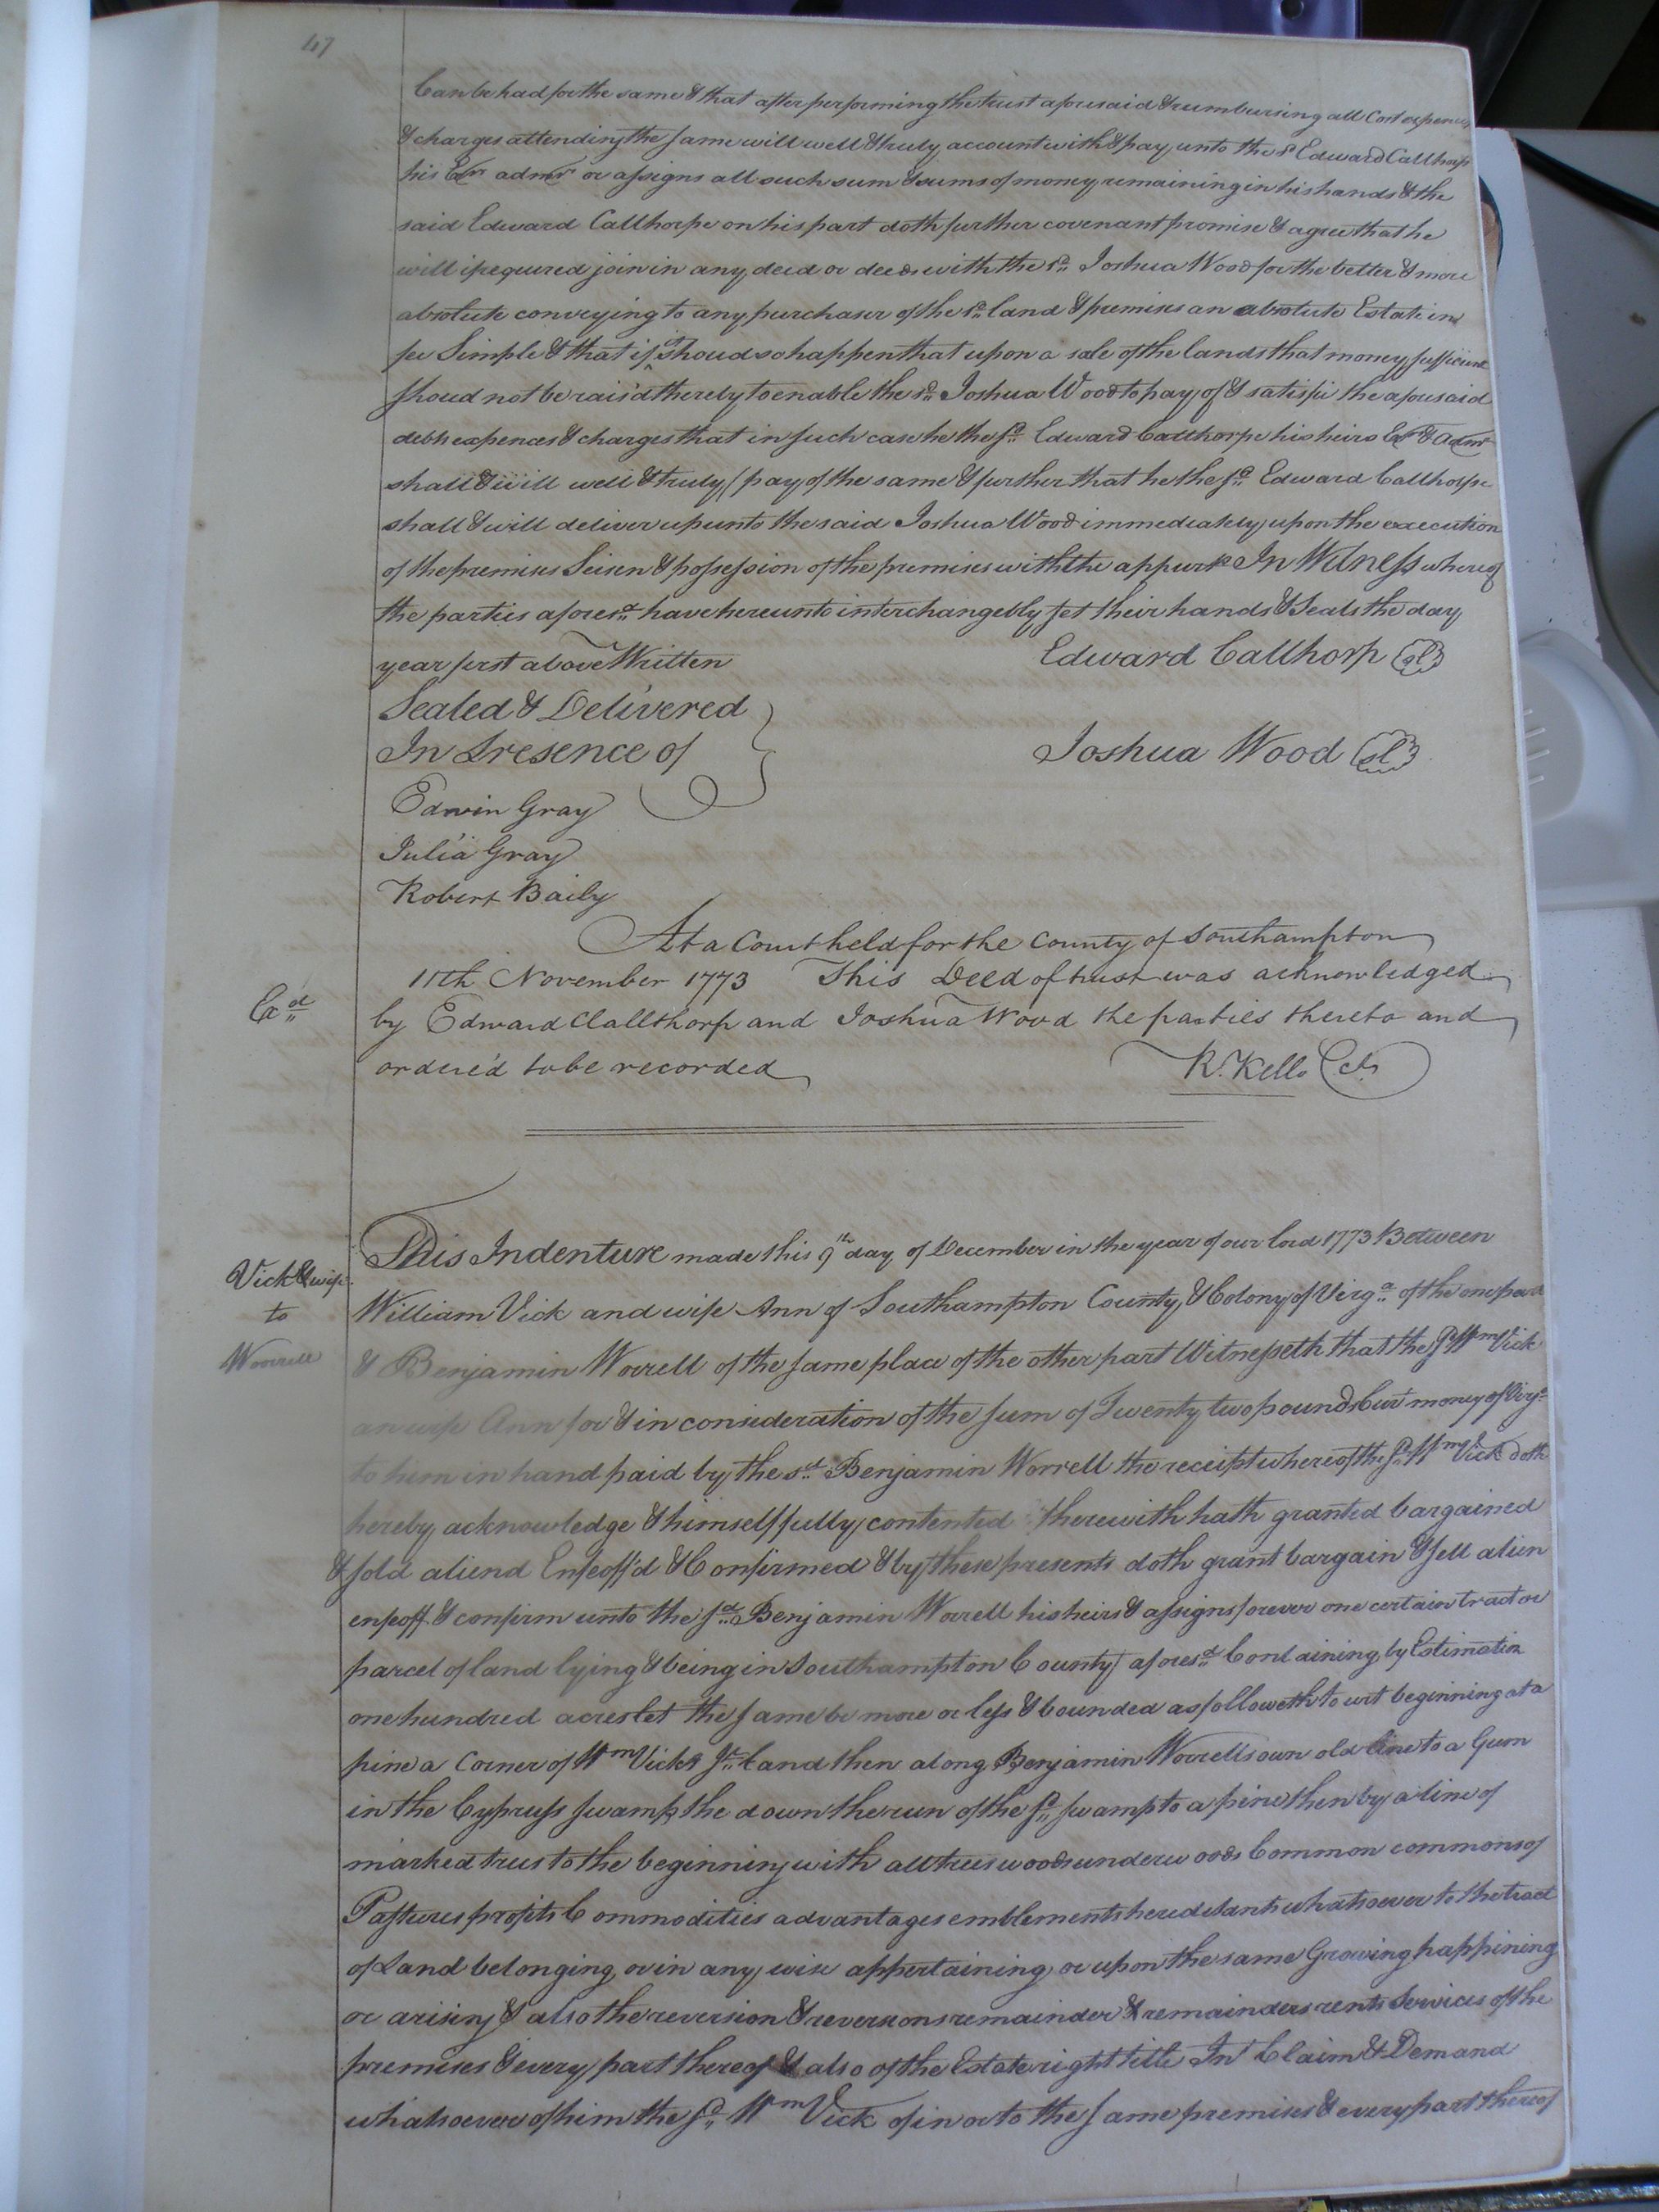 47
Can be had for the same & that after performing the trust aforesaid & reimbursing all Cost expences
& charges attending the same will well & truly account with & pay unto the sd Edward Callthorp
his Exrs admrs or assigns all such sum & sums of money remaining in his hands & the
said Edward Callthorpe on his part doth further covenant promise & agree that he
will if required join in any deed or deeds with the sd Joshua Wood for the better & more
absolute conveying to any purchaser of the sd land & premises an absolute Estate in
fee Simple & that if it shoud so happen that upon a sale of the lands that money sufficient
shoud not be rais'd thereby to enable the sd Joshua Wood to pay of & satisfie the aforesaid
debts expences & charges that in such case he the sd Edward Calthorpe his heirs Exrs & Admrs
shall & will well & truly pay of the same & further that he the sd Edward Callthorpe
shall & will deliver up unto the said Joshua Wood immediately upon the execution
of the premises Seisen & possession of the premises with the appurts In Witness whereof
the parties aforesd have hereunto interchangebly set their hands & Seals the day
year first above Written
Edward Callthorp sl
Sealed & Delivered
In Presence of
Joshua Wood sl
Edwin Gray
Julia Gray
Robert Baily
At a Court held for the County of Southampton
11th November 1773 This Deed of trust was acknowledged
Exd
by Edward Clallthorp and Joshua Wood the parties thereto and
order'd to be recorded
R. Kello Cl
This Indenture made this 9th day of December in the year of our lord 1773 Between
Vick & wife
to
Worrell
William Vick and wife Ann of Southampton County & Colony of Virga of the one part
& Benjamin Worrell of the same place of the other part Witnesseth that the sd Wm Vick
an wife Ann for & in consideration of the sum of Twenty two pounds Curt money of Virga
to him in hand paid by the sd Benjamin Worrell the receipt whereof the sd Wm Vick doth
hereby acknowledge & himself fully contented therewith hath granted bargained
& sold aliend Enfeoff'd & Confirmed & by these presents doth grant bargain & sell alien
enfeoff & confirm unto the sd Benjamin Worrell his heirs & assigns forever one certain tract or
parcel of land lying & being in Southampton County aforesd Containing by Estimation
one hundred acres let the same be more or less & bounded as followeth to wit beginning at a
pine a Corner of Wm Vicks Jr land then along Benjamin Worrells own old line to a Gum
in the Cypress swamp the down the run of the sd swamp to a pine then by a line of
marked trees to the beginning with all trees woods underwoods Common commons of
Pastures profits Commodities advantages emblements hereditants whatsoever to the tract
of Land belonging or in any wise appertaining or upon the same Growing happining
or arising & also the reversion & reversions remainder & remainders rents Services of the
premises & every part thereof & also of the Estate right title Int Claim & Demand
whatsoever of him the sd Wm Vick of in or to the same premises & every part thereof